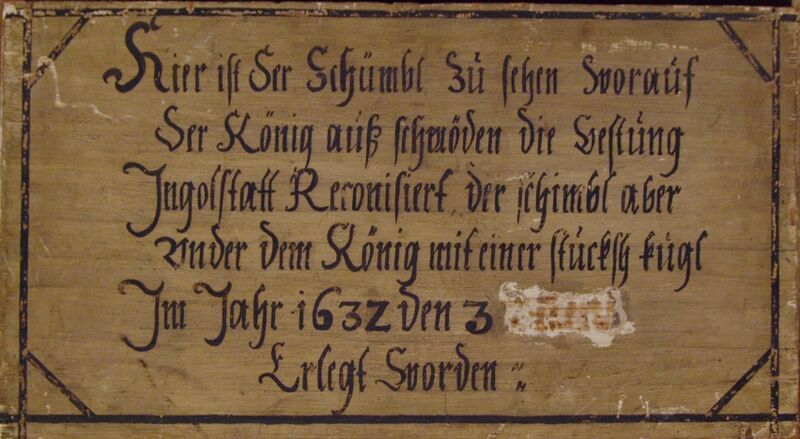 Hier ist der Schümbl zu sehen worauf
der König auß schwöden die Vestung
Ingolstatt Reconisiert, der schimbl aber
vnder dem König mit einer stücksh kugl
Im Jahr 1632 den 3
Erlegt worden